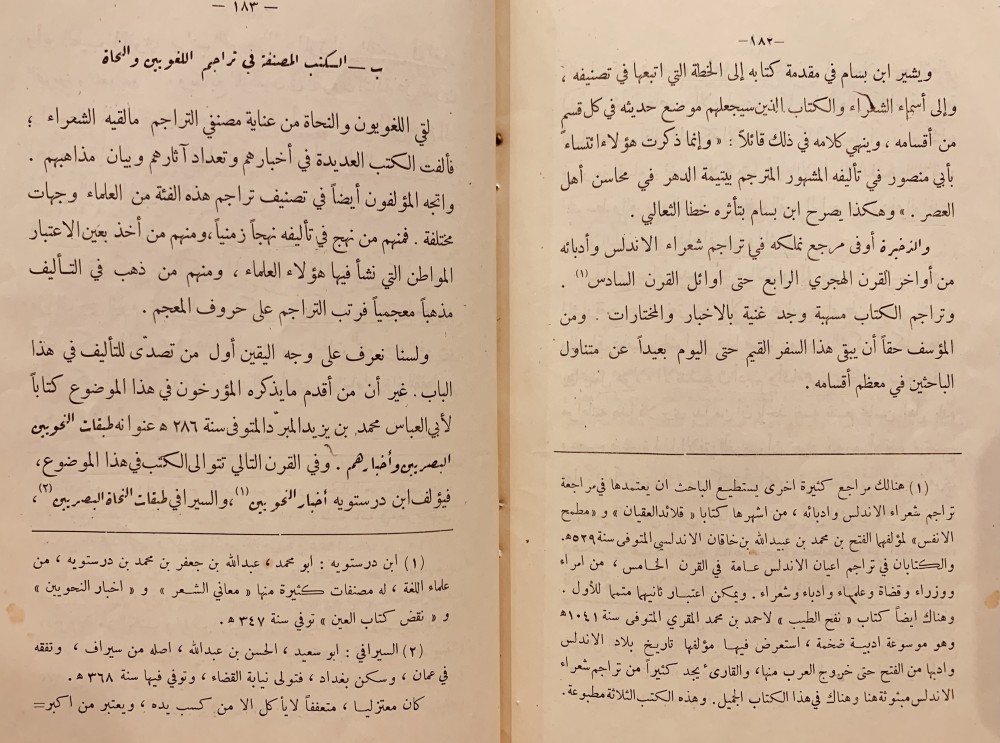 —١٨٢—
ويشير ابن بسام في مقدمة كتابه إلى الخطة التي اتبعها في تصنيفه ،
وإلى أسماء الشعراء والكتاب الذين سيجعلهم موضع حديثه في كل قسم
من أقسامه ، وينهي كلامه في ذلك قائلاً : « وإنما ذكرت هؤلاء ائتساء
بأبي منصور في تأليفه المشهور المترجم بيتيمة الدهر في محاسن أهل
العصر . » وهكذا يصرح ابن بسام بتأثره خطا الثعالبي .
والذخيرة أوفى مرجع نملكه في تراجم شعراء الاندلس وأدبائه
من أواخر القرن الهجري الرابع حتى اوائل القرن السادس (١) .
وتراجم الكتاب مسهبة وجد غنية بالاخبار والمختارات . ومن
المؤسف حقاً أن يبقى هذا السفر القيم حتى اليوم بعيداً عن متناول
الباحثين في معظم أقسامه .
(١) هنالك مراجع كثيرة اخرى يستطيع الباحث ان يعتمدها في مراجعة
تراجم شعراء الاندلس وادبائه ، من اشهرها كتابا « قلائد العقيان » و « مطمح
الانفس» لمؤلفهما الفتح بن محمد بن عبيدالله بن خاقان الاندلسي المتوفى سنة ٥٢٩ﻫ.
والكتابان في تراجم اعيان الاندلس عامة في القرن الخامس ، من امراء
ووزراء وقضاة وعلماء وادباء وشعراء . ويمكن اعتبار ثانيهما متمما للأول .
وهناك ايضاً كتاب « نفح الطيب » لاحمد بن محمد المقري المتوفى سنة ١٠٤١ﻫ
وهو موسوعة ادبية ضخمة ، استعرض فيها مؤلفها تاريخ بلاد الاندلس
وادبها من الفتح حتى خروج العرب منها، والقارئ يجد كثيراً من تراجم شعراء
الاندلس مبثوثة هنا وهناك في هذا الكتاب الجميل. وهذه الكتب الثلاثة مطبوعة.
— ١٨٣ —
ب — الكتب المصنفة في تراجم اللغويين والنحاة
لقي اللغويون والنحاة من عناية مصنفي التراجم مالقيه الشعراء ؛
فألفت الكتب العديدة في أخبارهم وتعداد آثارهم وبيان مذاهبهم .
واتجه المؤلفون أيضاً في تصنيف تراجم هذه الفئة من العلماء وجهات
مختلفة . فمنهم من نهج في تأليفه نهجاً زمنياً، ومنهم من أخذ بعين الاعتبار
المواطن التي نشأ فيها هؤلاء العلماء ، ومنهم من ذهب في التأليف
مذهباً معجمياً فرتب التراجم على حروف المعجم .
ولسنا نعرف على وجه اليقين أول من تصدّى للتأليف في هذا
الباب . غير أن من أقدم مايذكره المؤرخون في هذا الموضوع كتاباً
لأبي العباس محمد بن يزيد المبرّد المتوفى سنة ٢٨٦ ﻫ عنوانه طبقات النحويين
البصريين وأخبارهم . وفي القرن التالي تتوالى الكتب في هذا الموضوع،
فيؤلف ابن درستويه أخبار النحويين (١)، والسيرافي طبقات النحاة البصريين (٢)،
(١) ابن درستويه : ابو محمد ، عبدالله بن جعفر بن محمد بن درستويه ، من
علماء اللغة ، له مصنفات كثيرة منها « معاني الشعر » و « اخبار النحويين »
و « نقض كتاب العين » توفي سنة ٣٤٧ ﻫ .
(٢) السيرافي : ابو سعيد ، الحسن بن عبدالله ، اصله من سيراف ، وتفقه
في عمان ، وسكن بغداد ، فتولى نيابة القضاء ، وتوفي فيها سنة ٣٦٨ ﻫ .
كان معتزليا ، متعففاً لايأكل الا من كسب يده ، ويعتبر من اكبر=